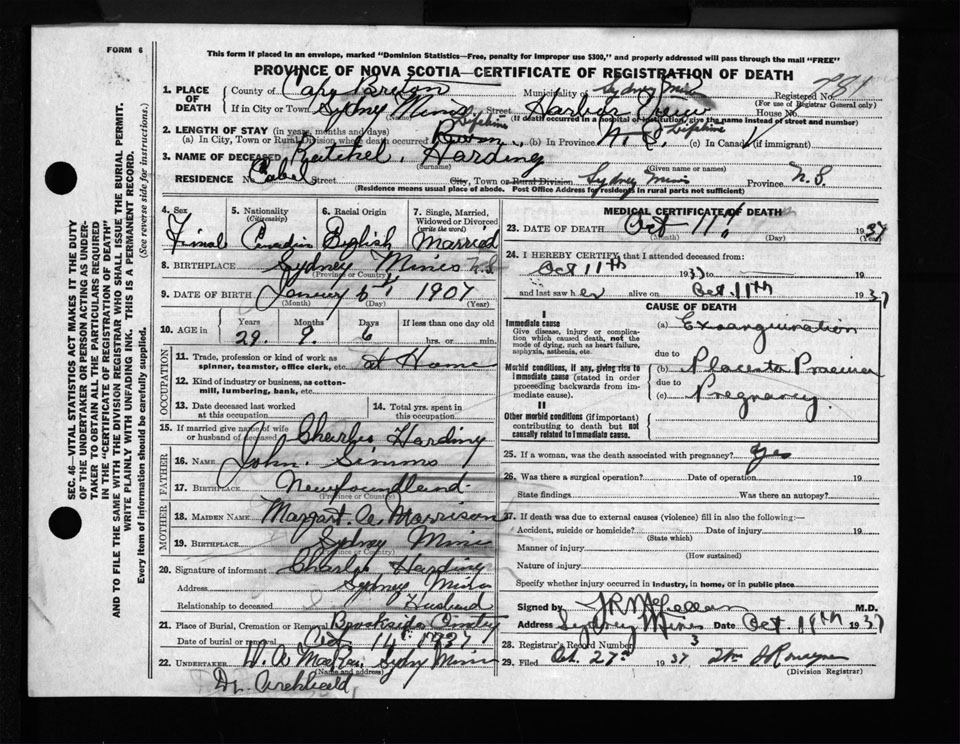 FORM 6
This form if placed in an envelope, marked "Dominion Statistics—Free, penalty for improper use $300," and properly addressed will pass through the mail "FREE"
PROVINCE OF NOVA SCOTIA—CERTIFICATE OF REGISTRATION OF DEATH
1. PLACE OF DEATH
County of Cape Breton Municipality of Sydney Mines Registered No. 781
(For use of Registrar General only)
If in City or Town Sydney Mines Street Harbor View House No.
(Name) (If death occurred in a hospital or institution, give the name instead of street and number)
2. LENGTH OF STAY (in years, months and days) Lifetime Lifetime
(a) In City, Town or Rural Division where death occurred Born (b) In Province N.S. (c) In Canada (if immigrant)
3. NAME OF DECEASED Ratchel Harding
(Surname) (Given name or names)
RESIDENCE No. Cabel Street City, Town or Rural Division Sydney Mines Province N.S.
(Residence means usual place of abode. Post Office Address for residents in rural parts not sufficient)
SEC. 46—VITAL STATISTICS ACT MAKES IT THE DUTY
OF THE UNDERTAKER OR PERSON ACTING AS UNDER-
TAKER TO OBTAIN ALL THE PARTICULARS REQUIRED
IN THE "CERTIFICATE OF REGISTRATION OF DEATH"
AND TO FILE THE SAME WITH THE DIVISION REGISTRAR WHO SHALL ISSUE THE BURIAL PERMIT.
WRITE PLAINLY WITH UNFADING INK. THIS IS A PERMANENT RECORD.
Every item of information should be carefully supplied. (See reverse side for instructions.)
4. Sex 5. Nationality (Citizenship) 6. Racial Origin 7. Single, Married, Widowed or Divorced (write the word)
Fimal Canadian English Married
8. BIRTHPLACE Sydney Mines N.S.
(Province or Country)
9. DATE OF BIRTH January 5 1907
(Month) (Day) (Year)
10. AGE in Years Months Days If less than one day old
29. 9. 6 hrs. or min.
OCCUPATION
11. Trade, profession or kind of work as spinner, teamster, office clerk, etc. at Home
12. Kind of industry or business, as cotton-mill, lumbering, bank, etc.
13. Date deceased last worked at this occupation
14. Total yrs. spent in this occupation
15. If married give name of wife or husband of deceased Charles Harding
FATHER
16. NAME John Simms
17. BIRTHPLACE Newfoundland
(Province or Country)
MOTHER
18. MAIDEN NAME Margart. A. Morrison
19. BIRTHPLACE Sydney Mines
(Province or Country)
20. Signature of informant Charles Harding
Address Sydney Mines
Relationship to deceased Husband
21. Place of Burial, Cremation or Removal Brookside
Date of burial or removal Oct 14 1937
22. UNDERTAKER W. A MacRae Sydny Mines
(Name and address)
Dr. Archibald
MEDICAL CERTIFICATE OF DEATH
23. DATE OF DEATH Oct 11 1937
(Month) (Day) (Year)
24. I HEREBY CERTIFY that I attended deceased from:
Oct 11th 1933 to
and last saw her alive on Oct. 11th 1937
CAUSE OF DEATH
I
Immediate cause
Give disease, injury or complication which caused death, not the mode of dying, such as heart failure, asphyxia, asthenia, etc.
(a) Exsanguination
due to
Morbid conditions, if any, giving rise to immediate cause (stated in order proceeding backwards from immediate cause).
(b) Placenta Praevia
due to
(c) Pregnancy
II
Other morbid conditions (if important) contributing to death but not causally related to immediate cause.
25. If a woman, was the death associated with pregnancy? yes
26. Was there a surgical operation? Date of operation 19
State findings Was there an autopsy?
27. If death was due to external causes (violence) fill in also the following:—
Accident, suicide or homicide? Date of injury 19
(State which)
Manner of injury
(How sustained)
Nature of injury
Specify whether injury occurred in industry, in home, or in public place
Signed by M.D.
Address Sydney Mines Date Oct 11th 1937
28. Registrar's Record Number 3
29. Filed Oct. 27 1937
(Division Registrar)